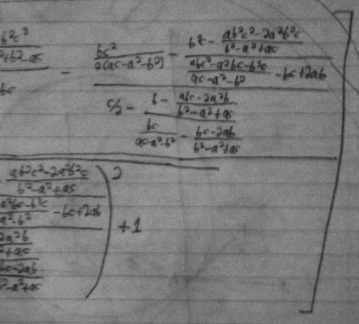 b²c²
²+b²-ac
bc
- bc²
2(ac-a²-b²)
- b² - ab²c²-2a²b²c
b²-a²+ac
abc²-a²bc-b³c
ac-a²-b²
-bc+2ab
c/2 - b - abc-2a²b
b²-a²+ac
bc
ac-a²-b²
- bc-2ab
b²-a²+ac
ab²c²-2a²b²c
b²-a²+ac
a²bc-b³c
a²-b²
-bc+2ab
2a²b
²+ac
bc-2ab
b²-a²+ac
2
+1